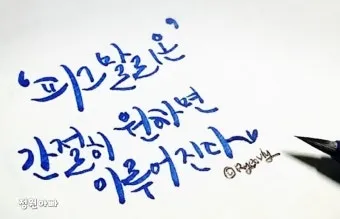 '피그말리온'
간절히 원하면
이루어진다
정원아빠